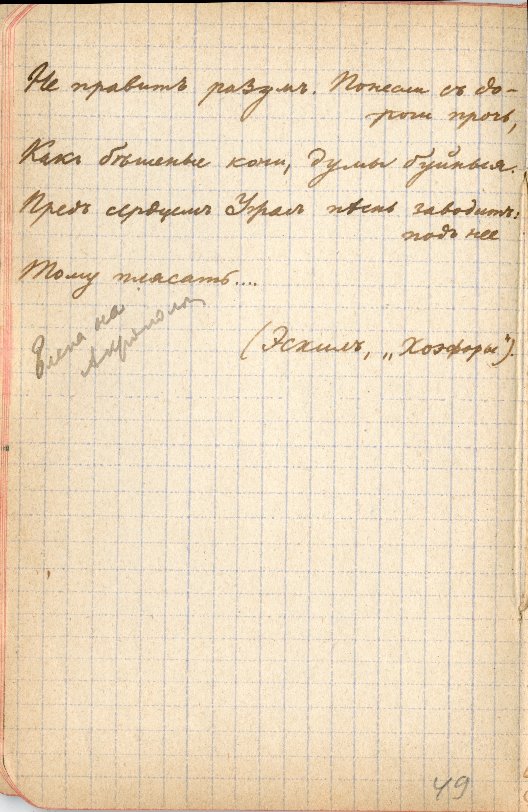 Не правитъ разумъ. Понесли съ до-
роги прочь,
Какъ бѣшеные кони, думы буйныя.
Предъ сердцемъ Ужасъ пѣснь заводитъ:
подъ нее
Тому плясать....
Елена на
Акрополѣ
(Эсхилъ, „Хоэфоры").
49